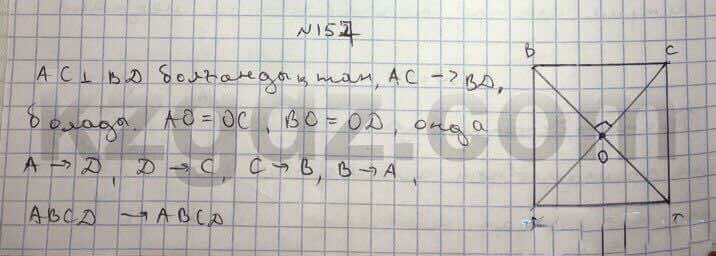 N157
B C
AC⊥BD болғандықтан, AC → BD,
болады. AO = OC, BO = OD, онда
A → D, D → C, C → B, B → A,
ABCD → ABCD
O
kzgdz.com